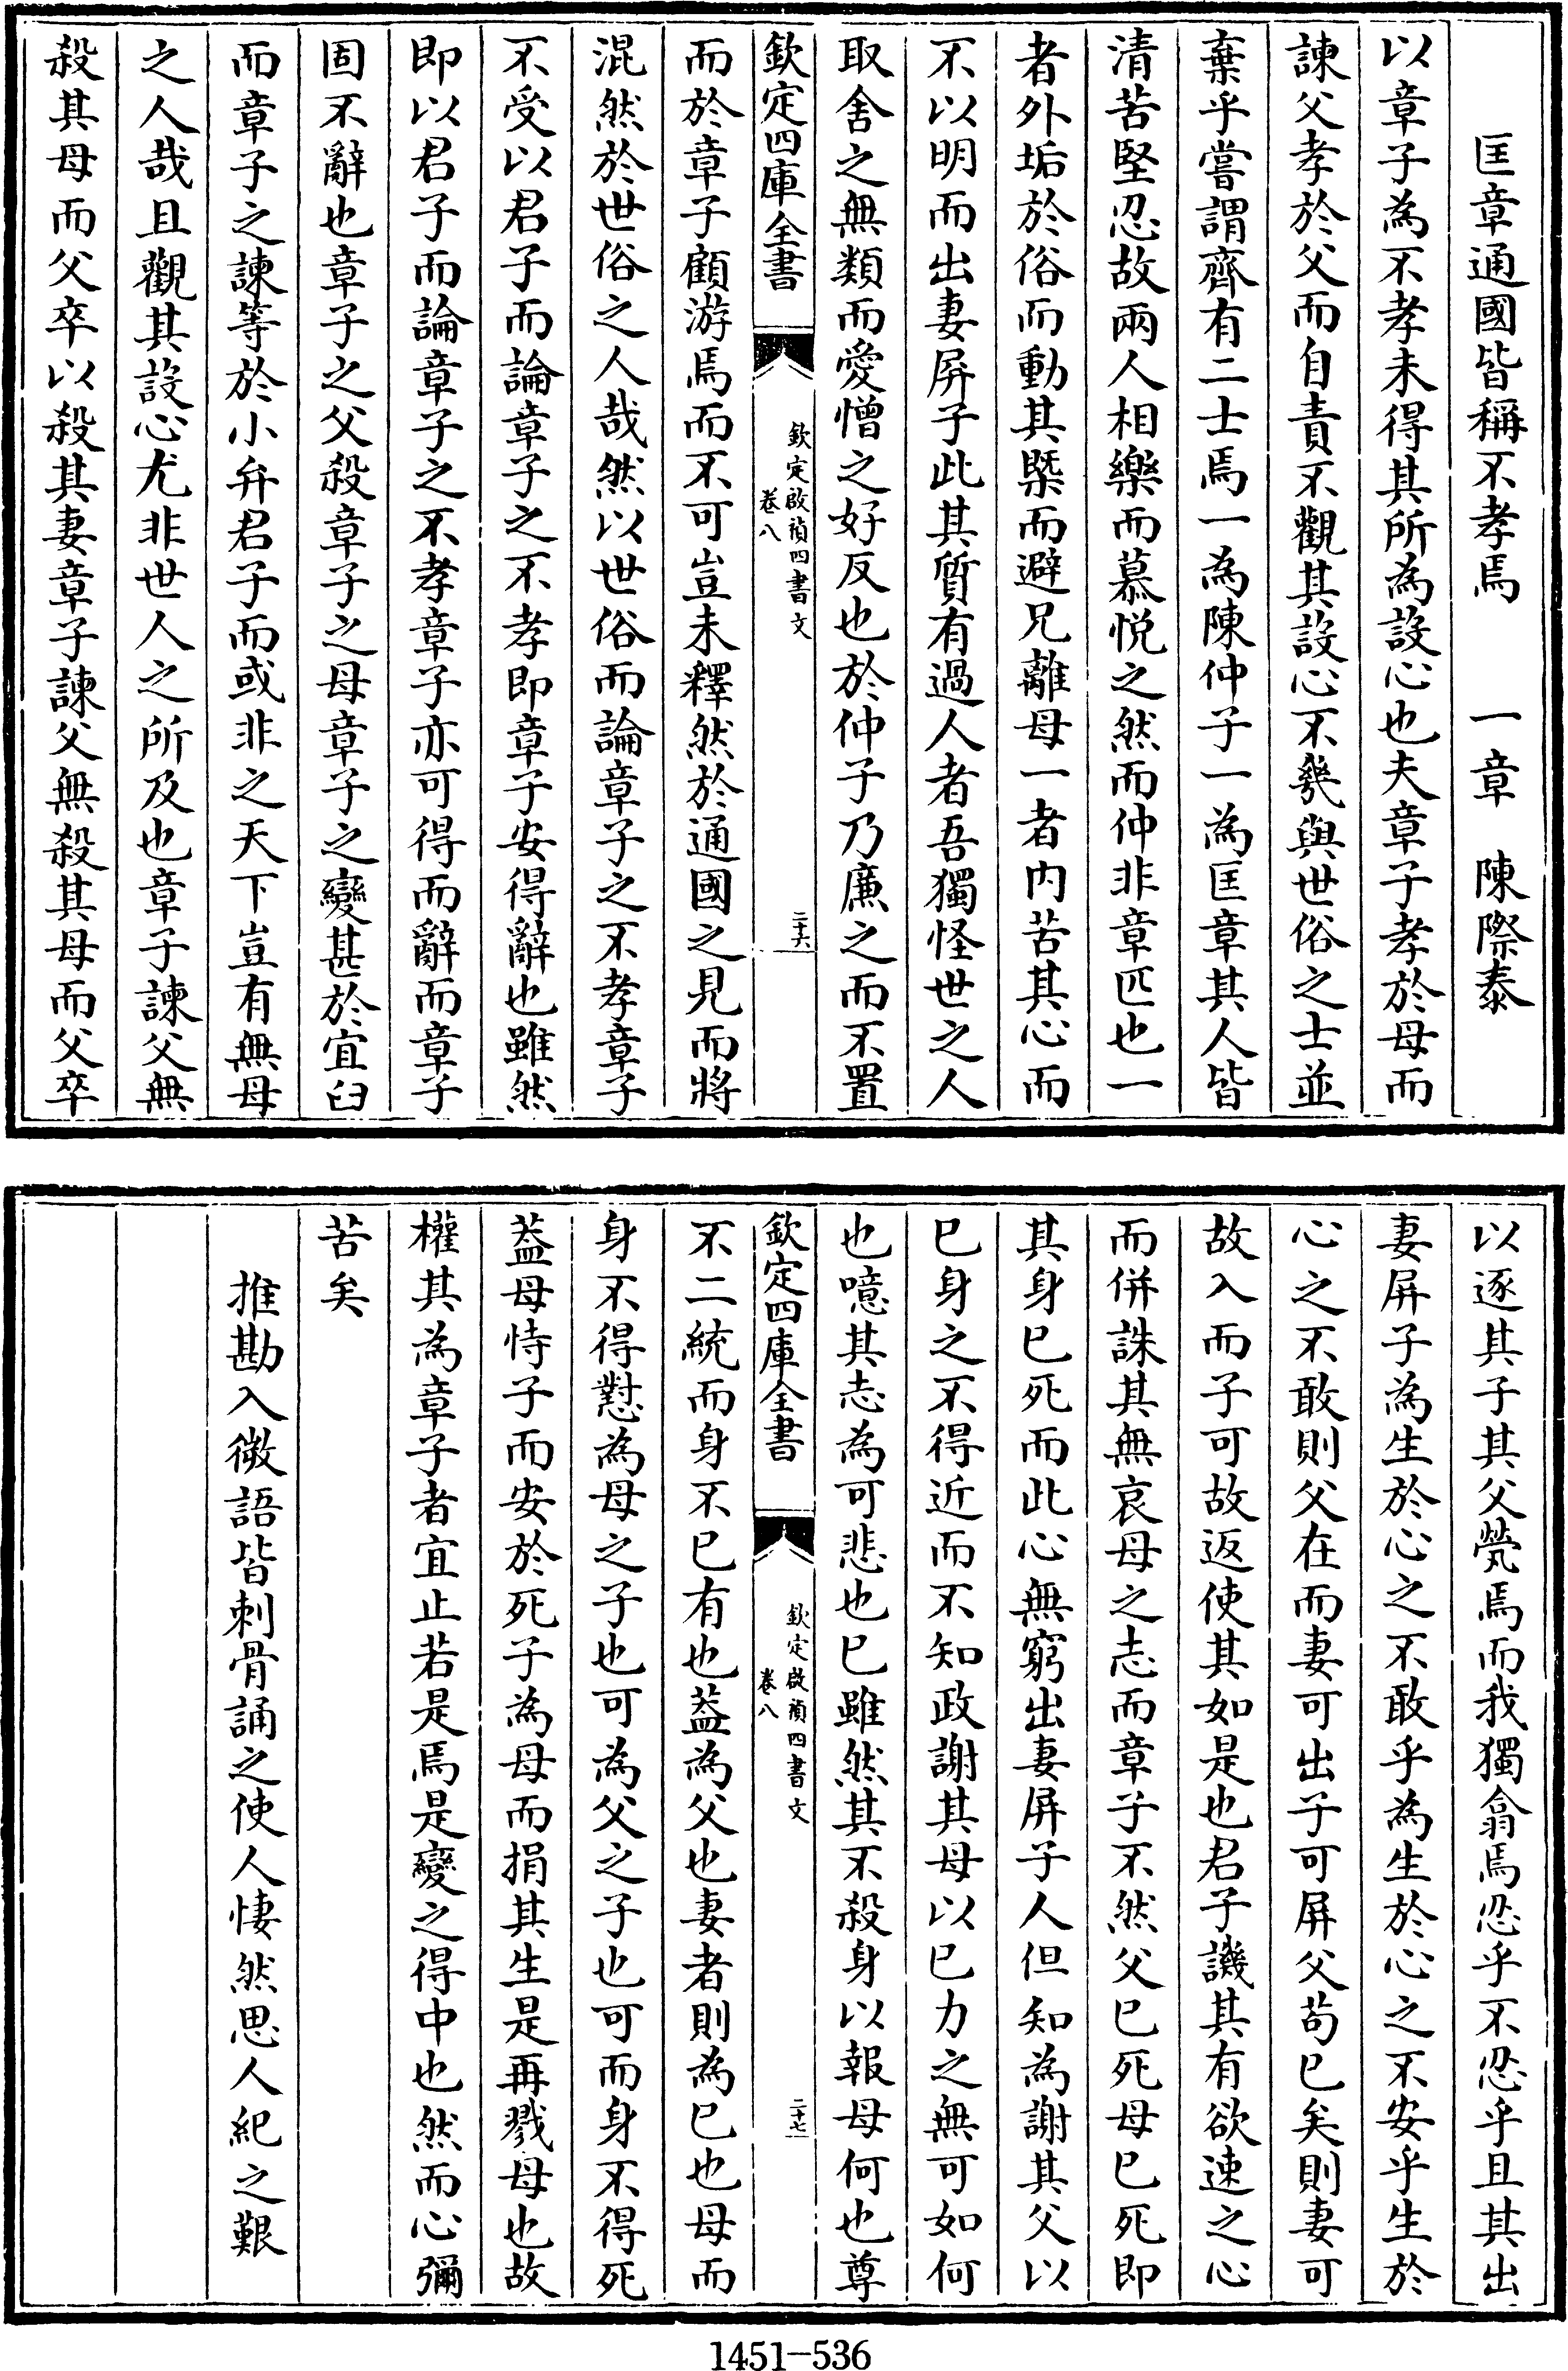 匡章通國皆稱不孝焉　一章　陳際泰
以章子為不孝未得其所為設心也夫章子孝於母而
諫父孝於父而自責不觀其設心不幾與世俗之士並
棄乎嘗謂齊有二士焉一為陳仲子一為匡章其人皆
清苦堅忍故兩人相樂而慕悅之然而仲非章匹也一
者外垢於俗而動其槩而避兄離母一者內苦其心而
不以明而出妻屏子此其質有過人者吾獨怪世之人
取舍之無類而愛憎之好反也於仲子乃廉之而不置
欽定四庫全書
欽定啟禎四書文
卷八
二十六
而於章子顧游焉而不可豈未釋然於通國之見而將
混然於世俗之人哉然以世俗而論章子之不孝章子
不受以君子而論章子之不孝即章子安得辭也雖然
即以君子而論章子之不孝章子亦可得而辭而章子
固不辭也章子之父殺章子之母章子之變甚於宜臼
而章子之諫等於小弁君子而或非之天下豈有無母
之人哉且觀其設心尤非世人之所及也章子諫父無
殺其母而父卒以殺其妻章子諫父無殺其母而父卒
以逐其子其父煢焉而我獨翕焉忍乎不忍乎且其出
妻屏子為生於心之不敢乎為生於心之不安乎生於
心之不敢則父在而妻可出子可屏父茍已矣則妻可
故入而子可故返使其如是也君子譏其有欲速之心
而併誅其無哀母之志而章子不然父已死母已死即
其身已死而此心無窮出妻屏子人但知為謝其父以
已身之不得近而不知政謝其母以已力之無可如何
也噫其志為可悲也已雖然其不殺身以報母何也尊
欽定四庫全書
欽定啟禎四書文
卷八
二十七
不二統而身不已有也葢為父也妻者則為已也母而
身不得懟為母之子也可為父之子也可而身不得死
葢母恃子而安於死子為母而捐其生是再戮母也故
權其為章子者宜止若是焉是變之得中也然而心彌
苦矣
推勘入微語皆刺骨誦之使人悽然思人紀之艱
1451-536